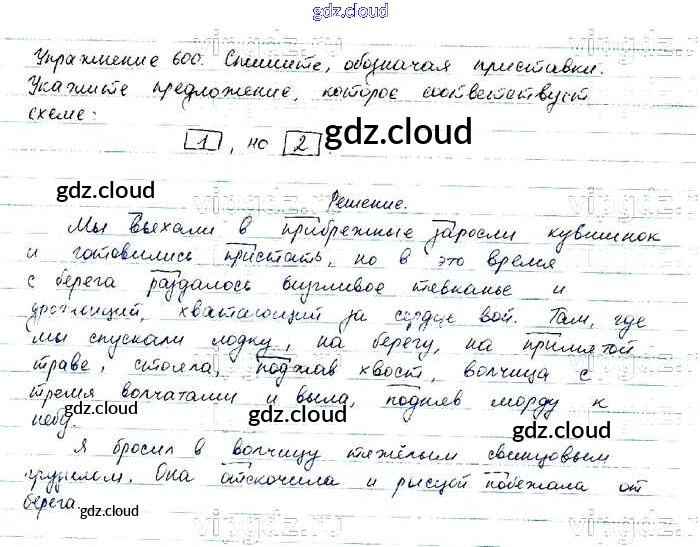 gdz.cloud
Упражнение 600. Спишите, обозначая приставки.
Укажите предложение, которое соответствует
схеме:
1, но 2.
gdz.cloud
gdz.cloud
Решение.
Мы въехали в прибрежные заросли кувшинок
и готовились пристать, но в это время
с берега раздалось визгливое тявканье и
gdz.cloud
gdz.cloud
протяжный, хватающий за сердце вой. Там, где
мы спускали лодку, на берегу, на примятой
траве, стояла, поджав хвост, волчица с
тремя волчатами и выла, подняв морду к
небу.
gdz.cloud
gdz.cloud
Я бросил в волчицу тяжёлым свинцовым
грузилом. Она отскочила и рысцой побежала от
берега.
gdz.cloud